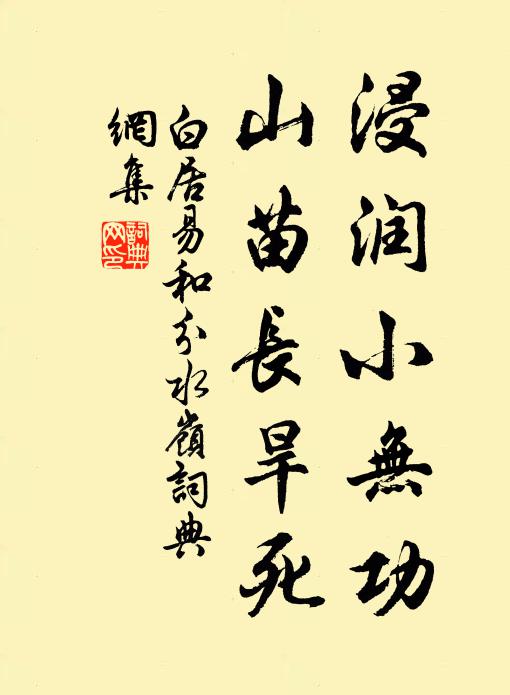 浸润小無功
山苗長旱死
白居易和分水嶺詞典
網集
詞典
网印